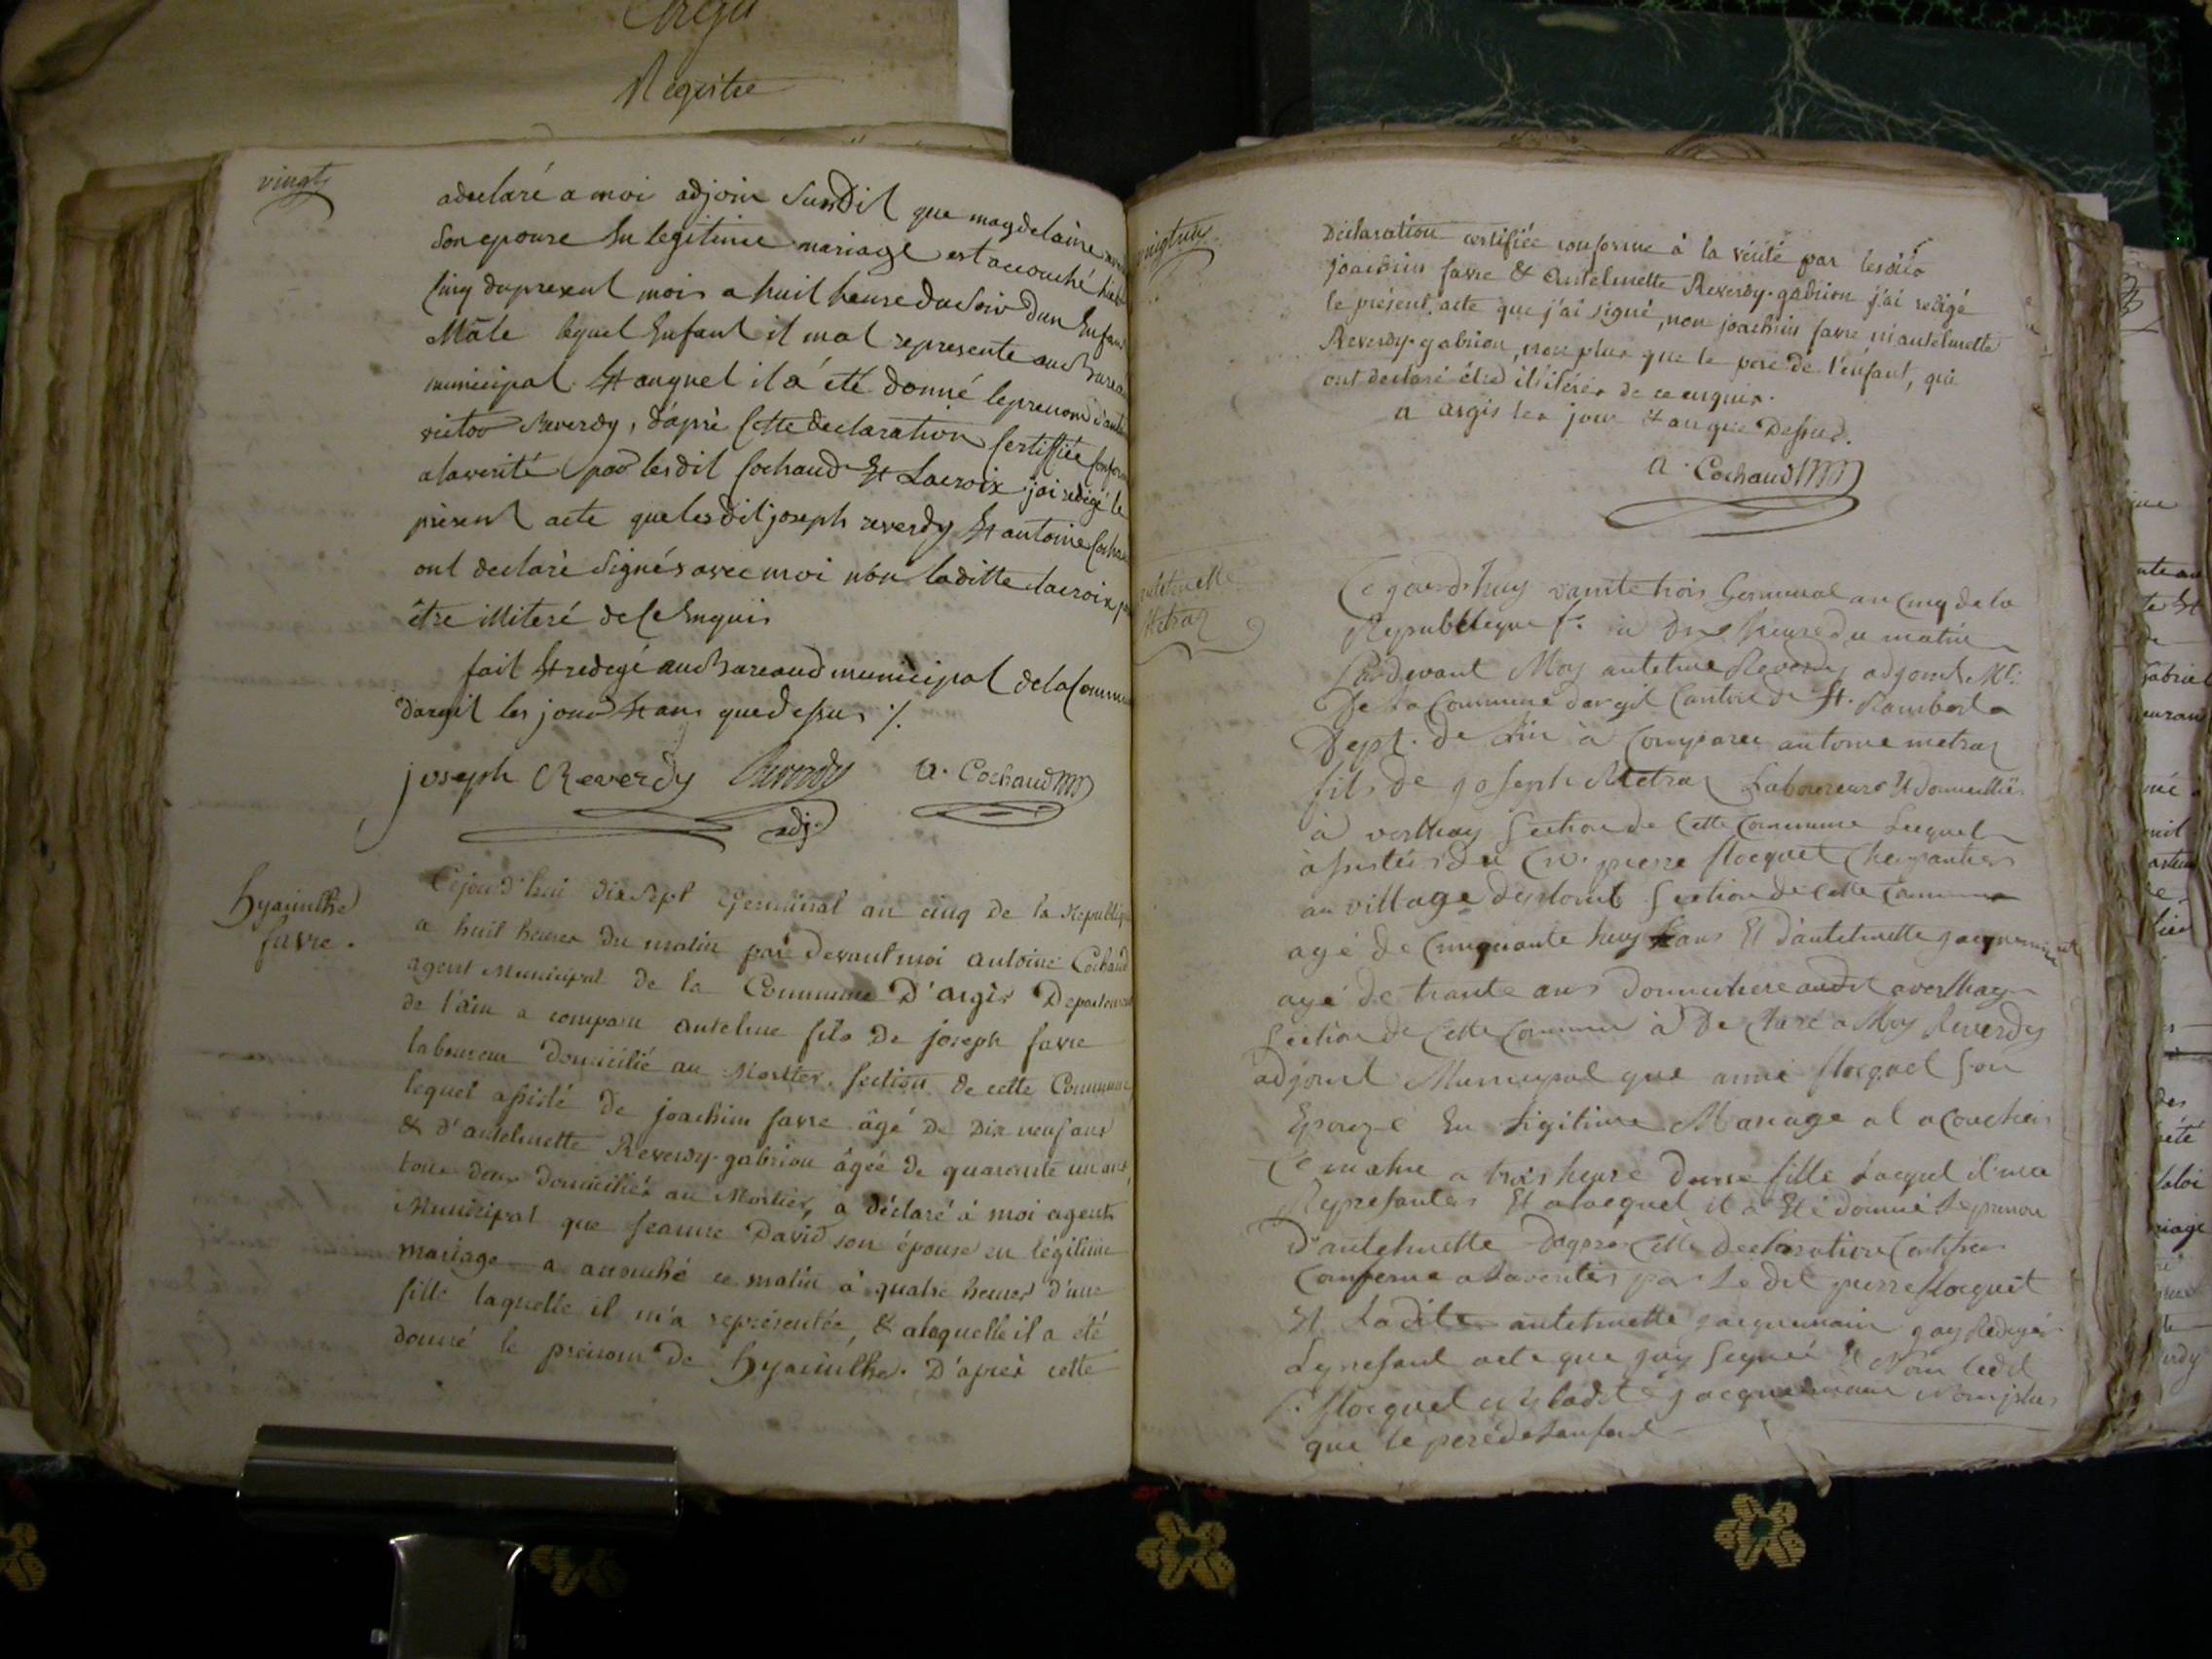 Registre
vingt
adeclaré a moi adjoin Susdit que magdelaine
Son epouse En legitime mariage est accouché hier
Cinq du present mois a huit heure du Soir dun Enfant
Mâle lequel Enfant il mat representé au Bureau
municipal Et auquel il a été donné le prenom
victor Reverdy, d'aprè Cette declaration Certiffiée Conforme
alaverité par lesdit Cochaud Et Lacroix jai redigé le
présent acte que lesdit joseph reverdy Et antoine Cochaud
ont declaré Signés avec moi non laditte Lacroix pour
être illiteré de Ce Enquis
fait Et redegé au Bareaud municipal dela Commune
dargil les jour Et ans que dessus ./.
joseph Reverdy Reverdy a. Cochaud
adj.
hyacinthe
favre.
Cejourd'hui dix Sept Germinal an cinq de la Republique
a huit heures du matin par devant moi antoine Cochaud
agent Municipal de la Commune D'argis Departement
de l'ain a comparu antelme fils de joseph favre
laboureur domicilié au Mortier, section de cette Commune,
lequel assisté de joachim favre âgé de dix neuf ans
& d'antelmette Reverdy-gabrion âgée de quarante un ans,
tous deux domiciliés au Mortier, a déclaré à moi agent
Municipal que jeanne David son épouse en légitime
mariage a accouché ce matin à quatre heures d'une
fille laquelle il m'a représentée, & a laquelle il a été
donné le prénom de hyacinthe. D'après cette
vingtun
Déclaration certifiée conforme à la vérité par lesdits
joachim favre & antelmette Reverdy-gabrion j'ai redigé
le présent acte que j'ai signé, non joachim favre ni antelmette
Reverdy-gabrion, non plus que le pere de l'enfant, qui
ont déclaré être illitérés de ce enquis.
a argis les jour & an que Dessus.
a. Cochaud
antelmette
Metraz
Cejourdhuy vainte trois Germinal an Cinq de la
Republieque f. a heure du matin
Pardevant Moy antelme Reverdy adjoint Ml.
De la Commune dargil Canton de St. Rambert
Dept. de Lin à Comparu antoine metraz
fils de joseph Metraz Laboureure Et domicillié
à section de Cette Commune Lequel
assistés du Cn. pierre floequet Charpantier
au village Section de Cette Commune
agé de Cinquante huy ans Et d'antelmette jacquemain
agé de trante ans domiciliere audit
Section de Cette Commune à De Claré a Moy Reverdy
adjoint Municipal que anne floequet Son
Epouze En ligitime Mariage at acouchée
Ce matin a trois heure dune fille Laquel il ma
Represantés Et alaequel il a Eté donné Le prenon
D'antelmette Dapres Cette Declaration Certifiee
Comferme alaverités par Le dit pierre floequet
Et Ladite antelmette jacquemain jay Redigés
Le presant acte que jay Signé Et Non ledit
P. floequet ny ladite jacquemain Nomplus
que le pere de Lanfant